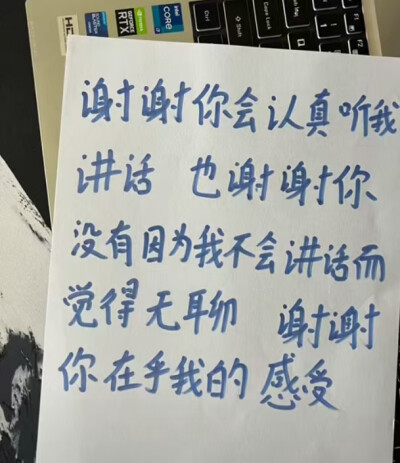 GEFORCE
RTX
intel
CORE
i7
Ctrl
谢谢你会认真听我
讲话 也谢谢你
没有因为我不会讲话而
觉得无聊 谢谢
你在乎我的感受